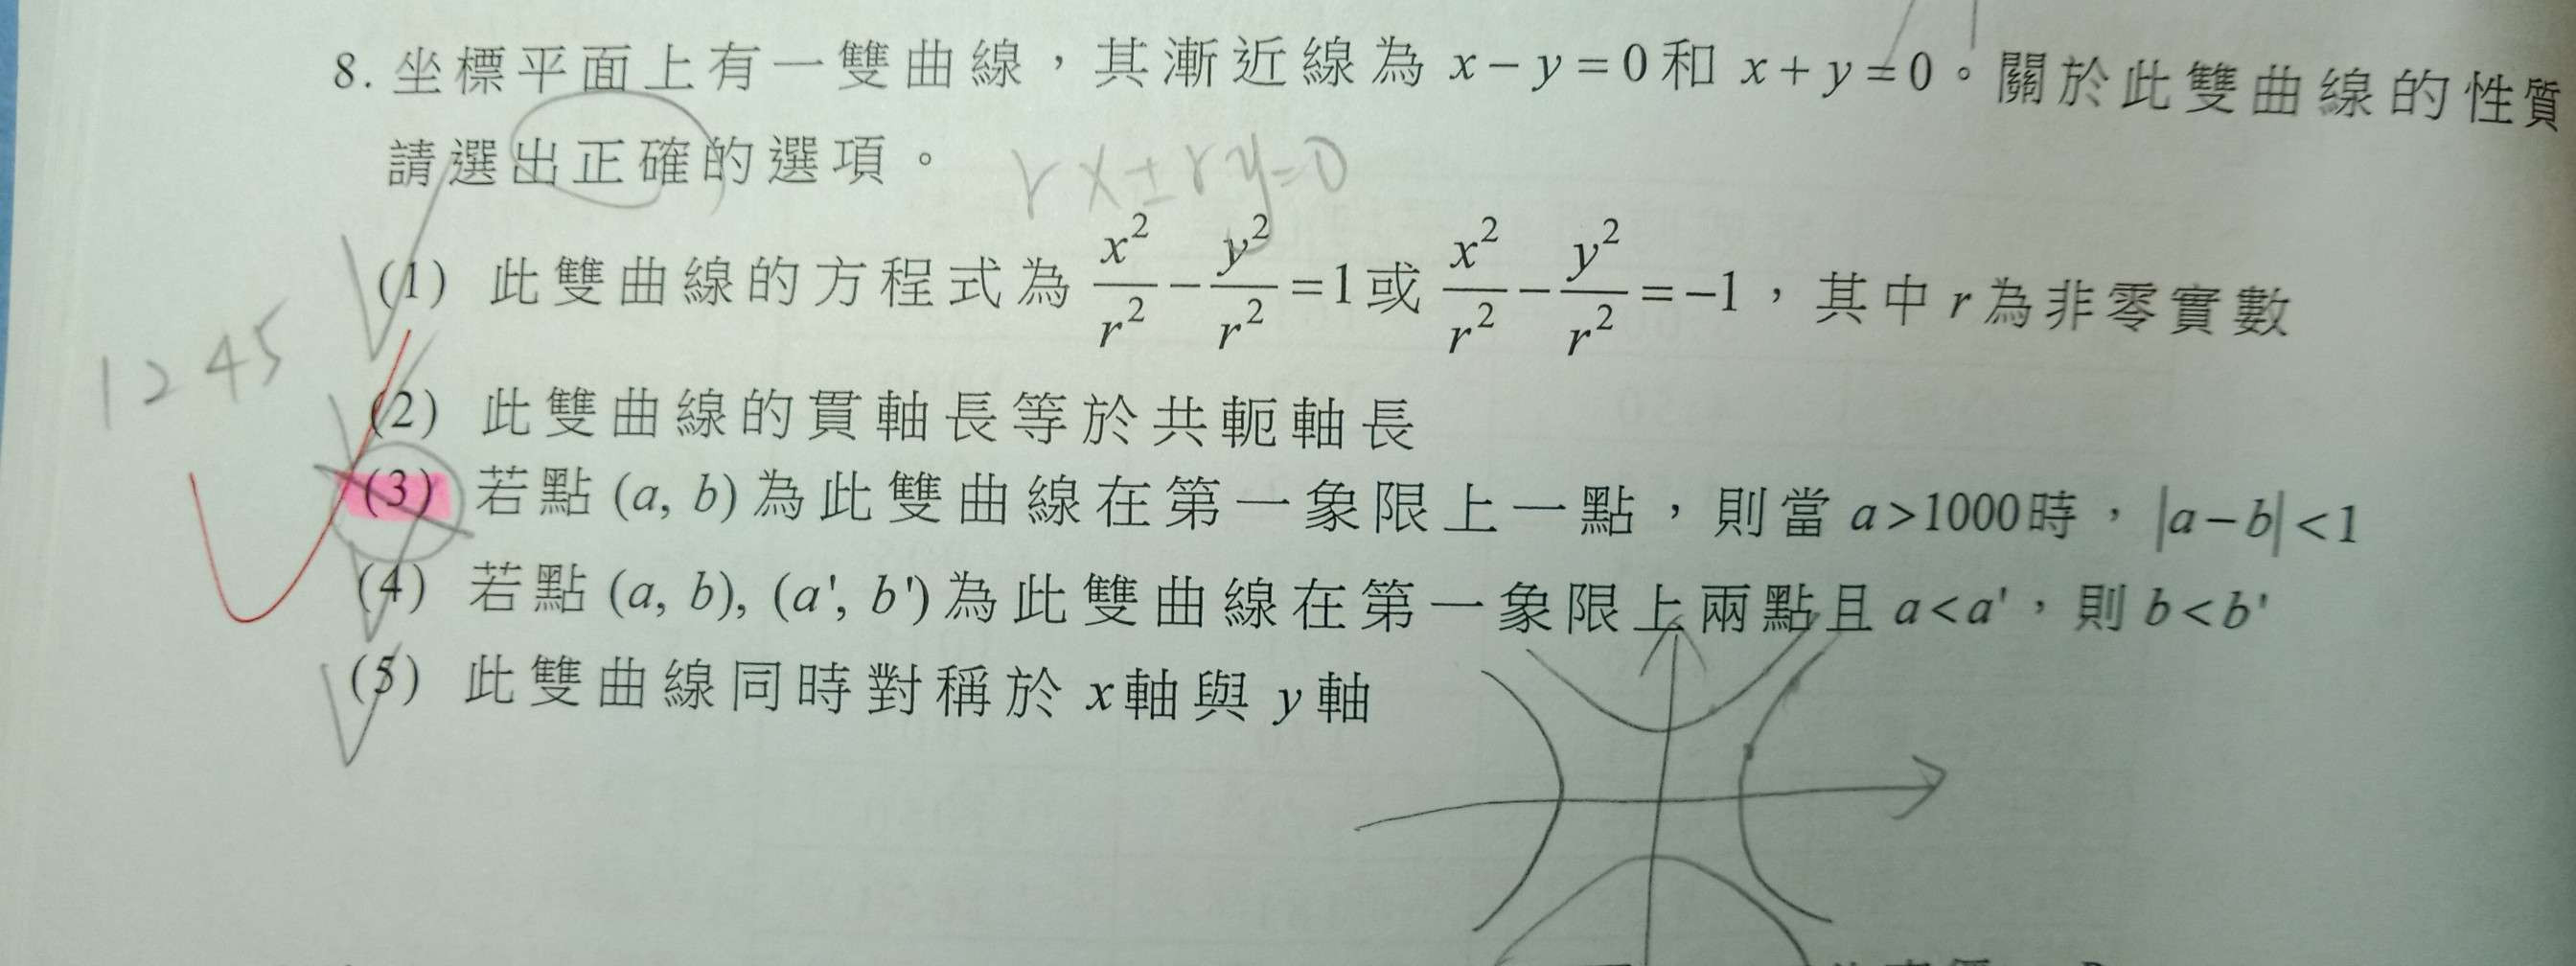 8. 坐標平面上有一雙曲線，其漸近線為 x − y = 0 和 x + y = 0。關於此雙曲線的性質
請選出正確的選項。
rx ± ry = 0
(1) 此雙曲線的方程式為 x²/r² − y²/r² = 1 或 x²/r² − y²/r² = −1，其中 r 為非零實數
1245
(2) 此雙曲線的貫軸長等於共軛軸長
(3) 若點 (a, b) 為此雙曲線在第一象限上一點，則當 a > 1000 時，|a − b| < 1
(4) 若點 (a, b), (a', b') 為此雙曲線在第一象限上兩點且 a < a'，則 b < b'
(5) 此雙曲線同時對稱於 x 軸與 y 軸